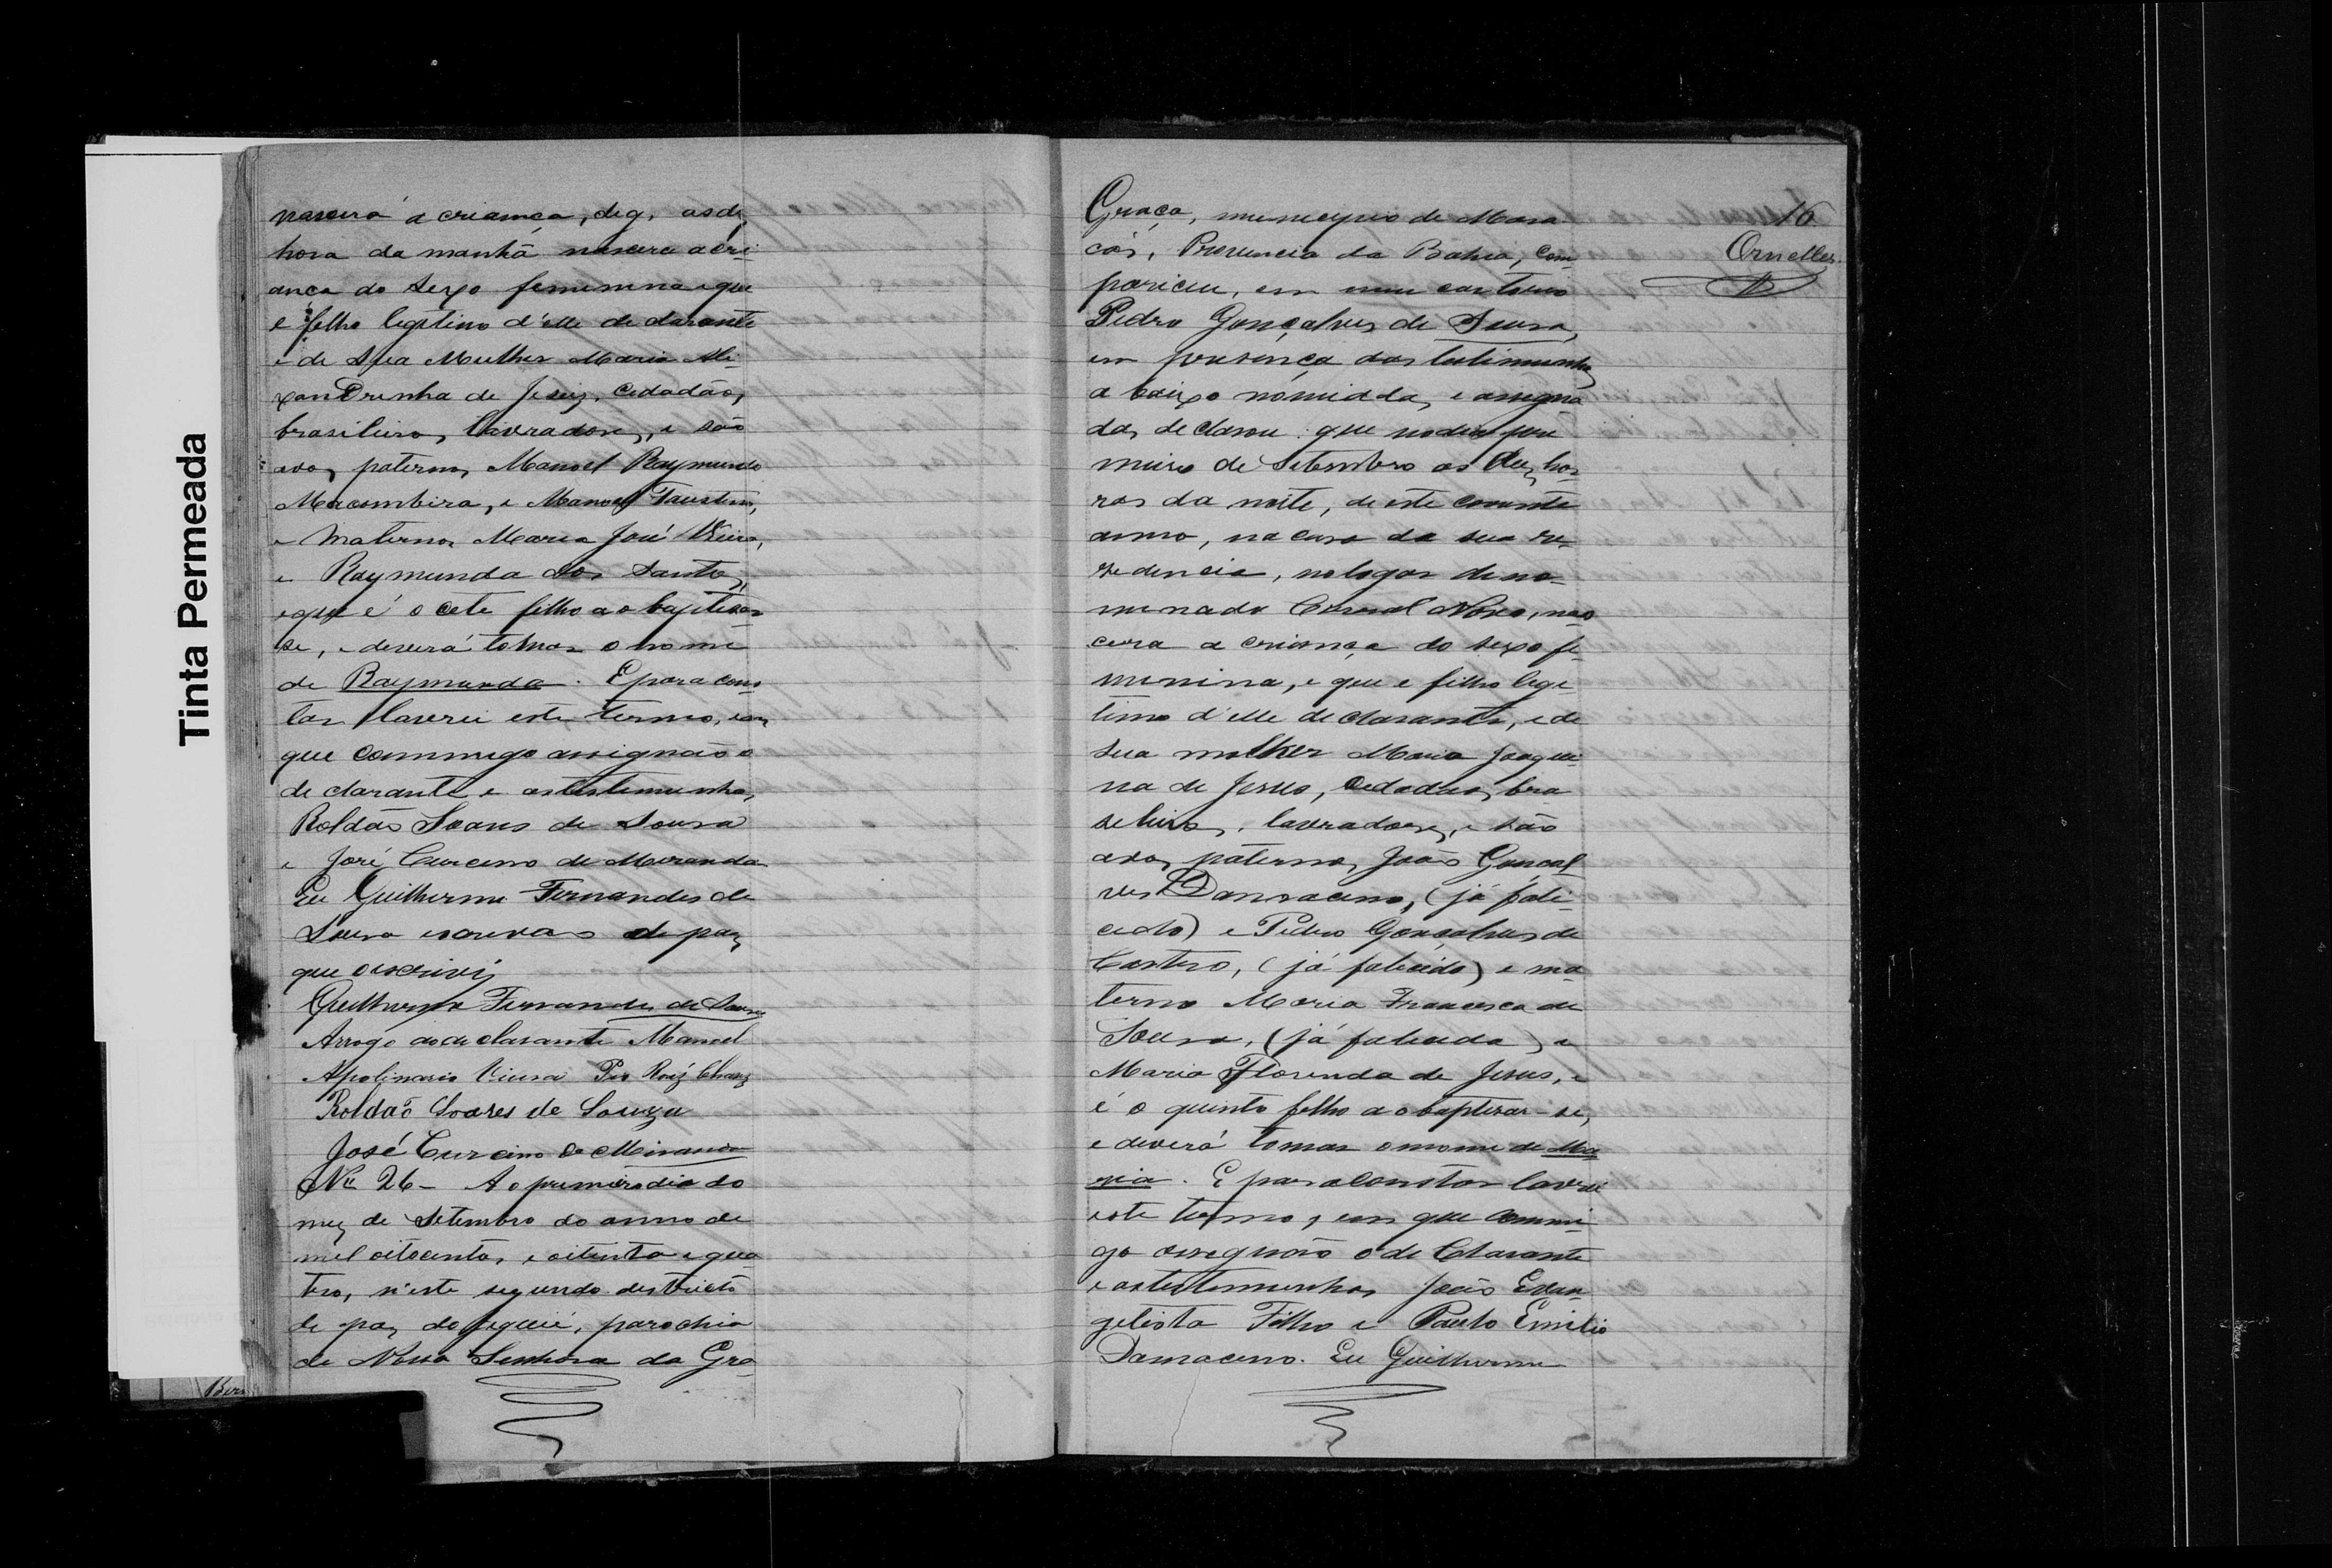 Tinta Permeada
nascera a criança, dig, as de
hora da manhã nascera a cri-
ança do sexo feminina e que
é filho legitimo d'elle declarante
e de sua Mulher Maria Ale-
xandrinha de Jesuz, Cedadãos,
brasileiros, lavradores, e são
avos paternos Manoel Raymundo
Macambira, e Manoel Faustino,
e Maternos Maria José Vieira,
e Raymunda dos Santos,
e que é o cete filho a o baptisar-
se, e deverá tomar o nome
de Raymunda. E para cons
tar lavrei este termo, em
que commigo assignão o
declarante e as testemunhas,
Roldão Soares de Sousa
e José Curcino de Miranda
Eu Guilherme Fernandes de
Sousa escrevão de paz
que o escrivi
Guilherme Fernandes de Sousa
Arrogo do declarante Manoel
Apolinario Vieira Pio Roiz Chaves
Roldaõ Soares de Souza
José Curcino de Miranda
Nº 26 - Ao primeiro dia do
mez de Setembro do anno de
mil oitocentos, e oitenta e qua
tro, n'este segundo destricto
de paz do Jequié, parochia
de Nossa Senhora da Gra-
Graça, municipio de Mara
cás, Provencia da Bahia, com-
pariceu, em meu cartorio
Pedro Gonçalves de Sousa,
em presença das testimunhas
a baixo nomiadas, e assigna
das, declarou: que no dia pri
meiro de Setembro as dez ho-
ras da noite, de este corrente
anno, na casa da sua re-
zedencia, no logar deno-
minado Curral Novo, nas
cera a criança do sexo fe-
minina, e que e filho lege
timo d'elle declarante, e de
sua molher Maria Joaqui
na de Jesus, Cedadãos, bra
seleiros, lavradores, e são
avos paternos, João Gonçal
ves Damaceno, (já fale-
cedo) e Pedro Gonçalves de
Castro, (já falecido) e ma
ternos Maria Francesca de
Sousa, (já falecida) e
Maria Florenda de Jesus, e
é o quinto filho a o baptesar-se,
e deverá tomar o nome de Ma
ria. E para constar lavrei
este termo, em que commi-
go asseguão o declarante
e as testemunhas João Evan-
gelista Filho e Paulo Emilio
Damaceno. Eu Guilherme
16
Ornellas